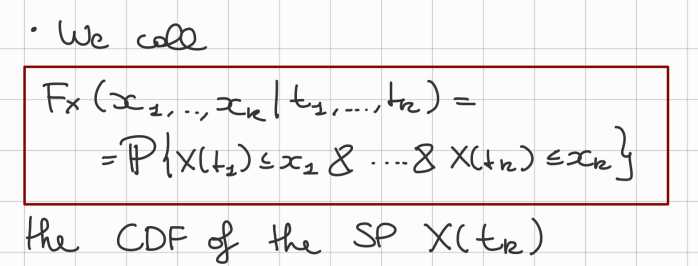 · We call
Fx (x₁, .., xₖ | t₁, ..., tₖ) =
= ℙ{X(t₁) ≤ x₁ & .... & X(tₖ) ≤ xₖ}
the CDF of the SP X(tₖ)